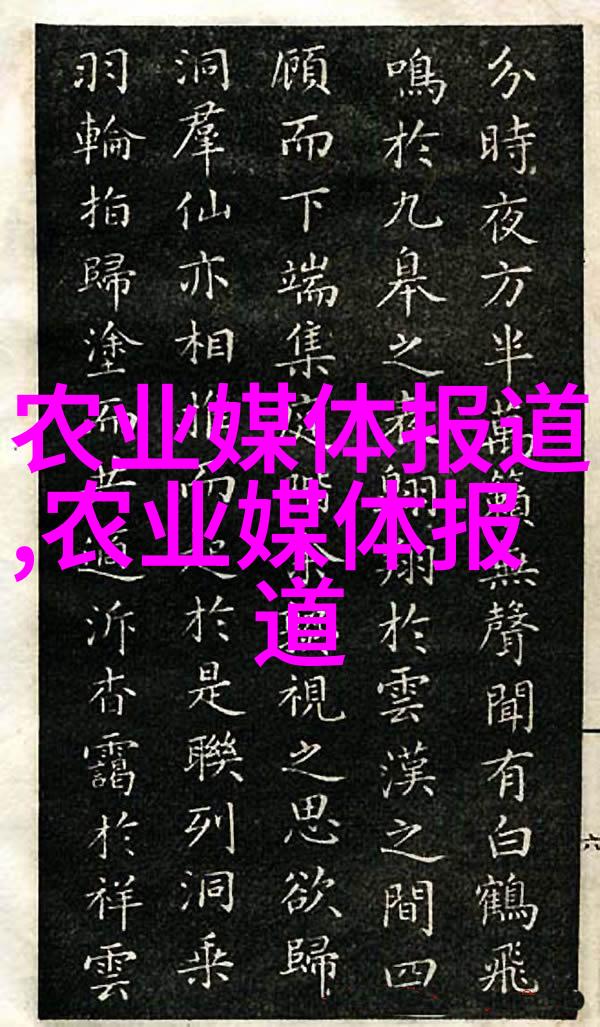 农业媒体报道
,农业媒体报
道
分時夜方半萬籟無聲聞有白鶴飛
鳴於九皋之表翱翔於雲漢之間四
顧而下端集庭視之思欲歸
洞羣仙亦相而起於是聯列洞乗
羽輪指歸塗而邁泝杳靄於祥雲
六